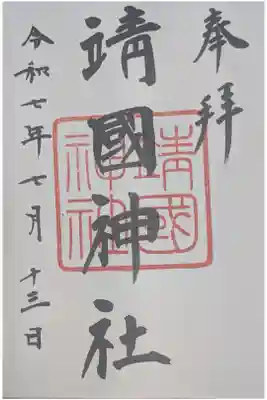 奉拝
靖國神社
靖國神社
令和七年七月十三日